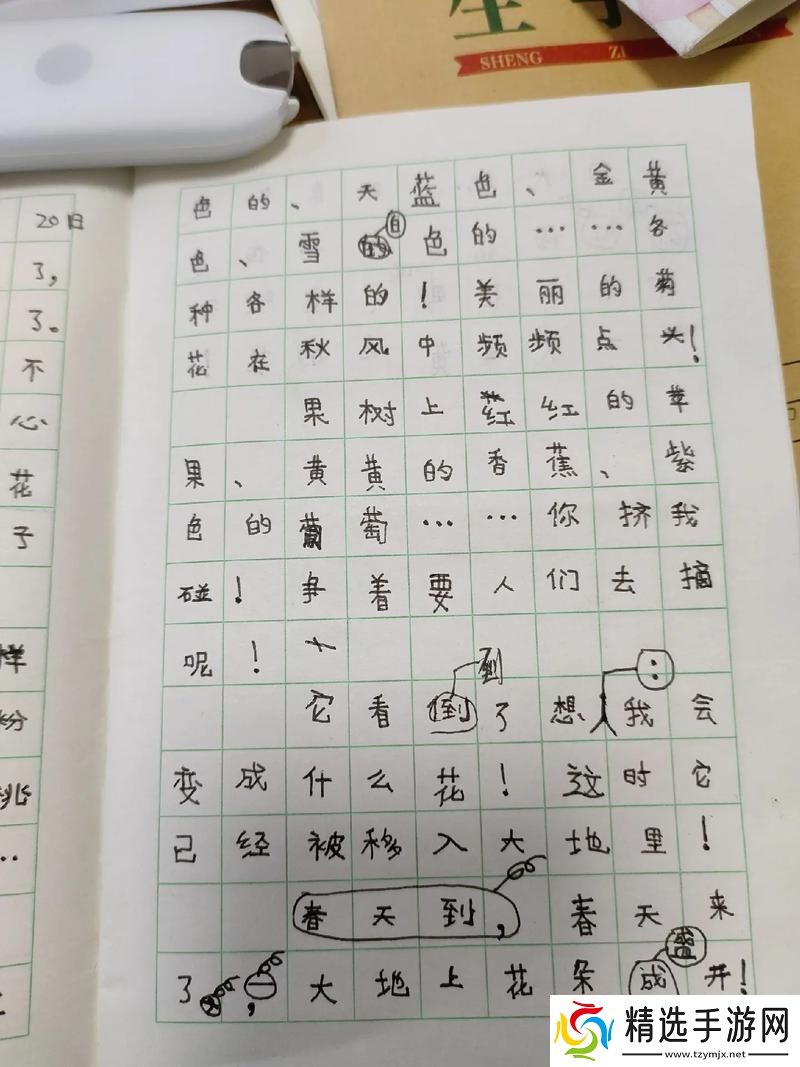 生
SHENG ZI
20日
了,
了。
不
心
花
子
样
粉
桃
..
色的、天蓝色、金黄
色、雪白色的……各
种各样的！美丽的菊
花在秋风中频频点头！
果树上红红的苹
果、黄黄的香蕉、紫
色的葡萄……你挤我
碰！争着要人们去摘
呢！
到
它看倒了想：我会
变成什么花！这时它
已经被移入大地里！
春天到，春天来
盛
了，大地上花朵成开！
精选手游网
www.tzymjx.net